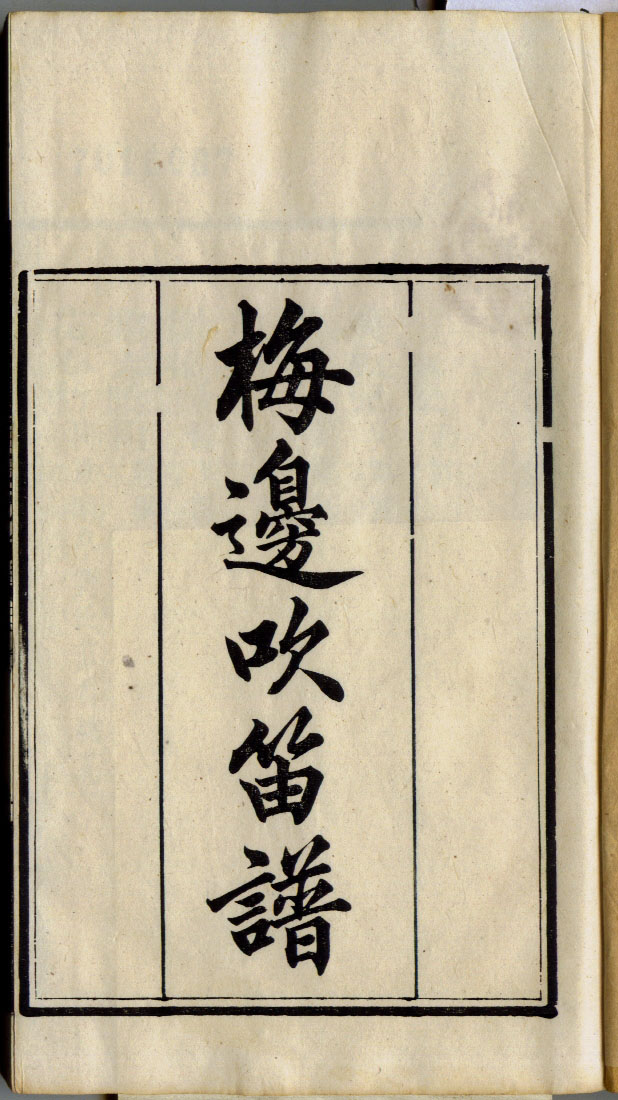 梅邊吹笛譜